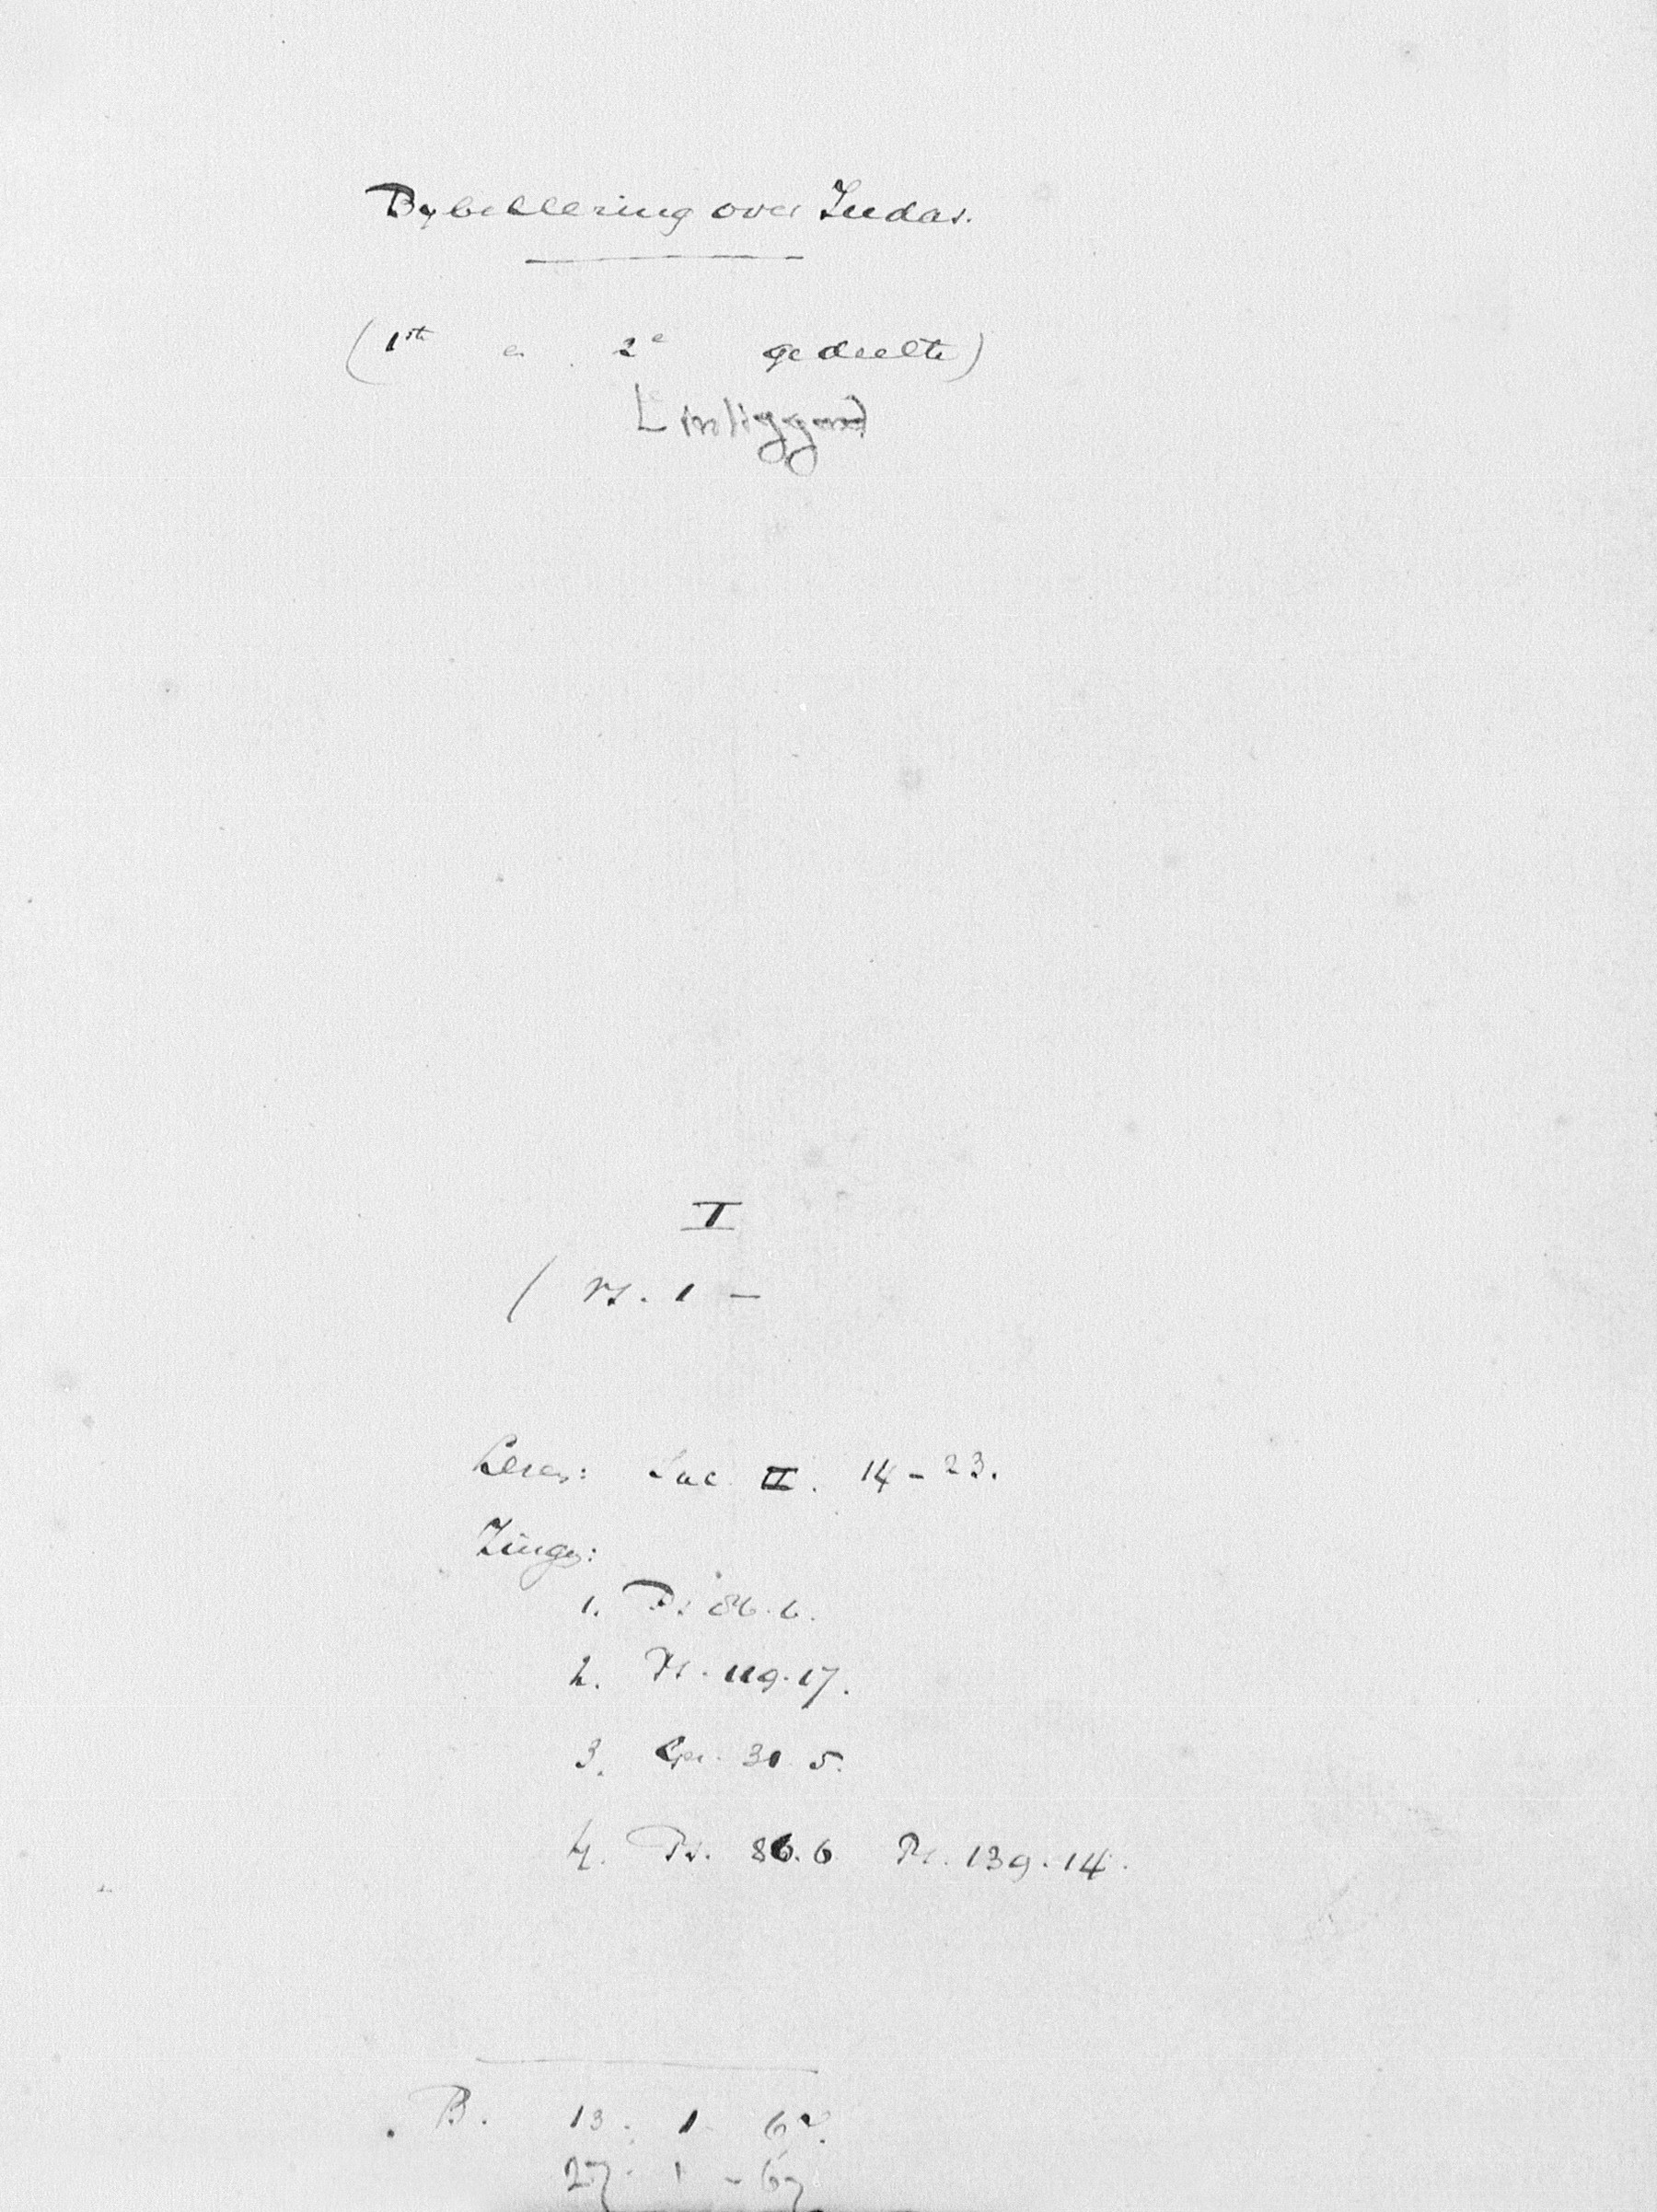 Bybellezing over Judas.
(1ste en 2e gedeelte)
inliggend
I
( vs. 1 –
Lezen: Luc II. 14 – 23.
Zingen:
1. Ps 86. 6.
2. Ps. 119. 17.
3. 30. 5.
4. Ps. 86. 6 Ps. 139. 14.
B. 13. 1. 67.
27. 1 – 67